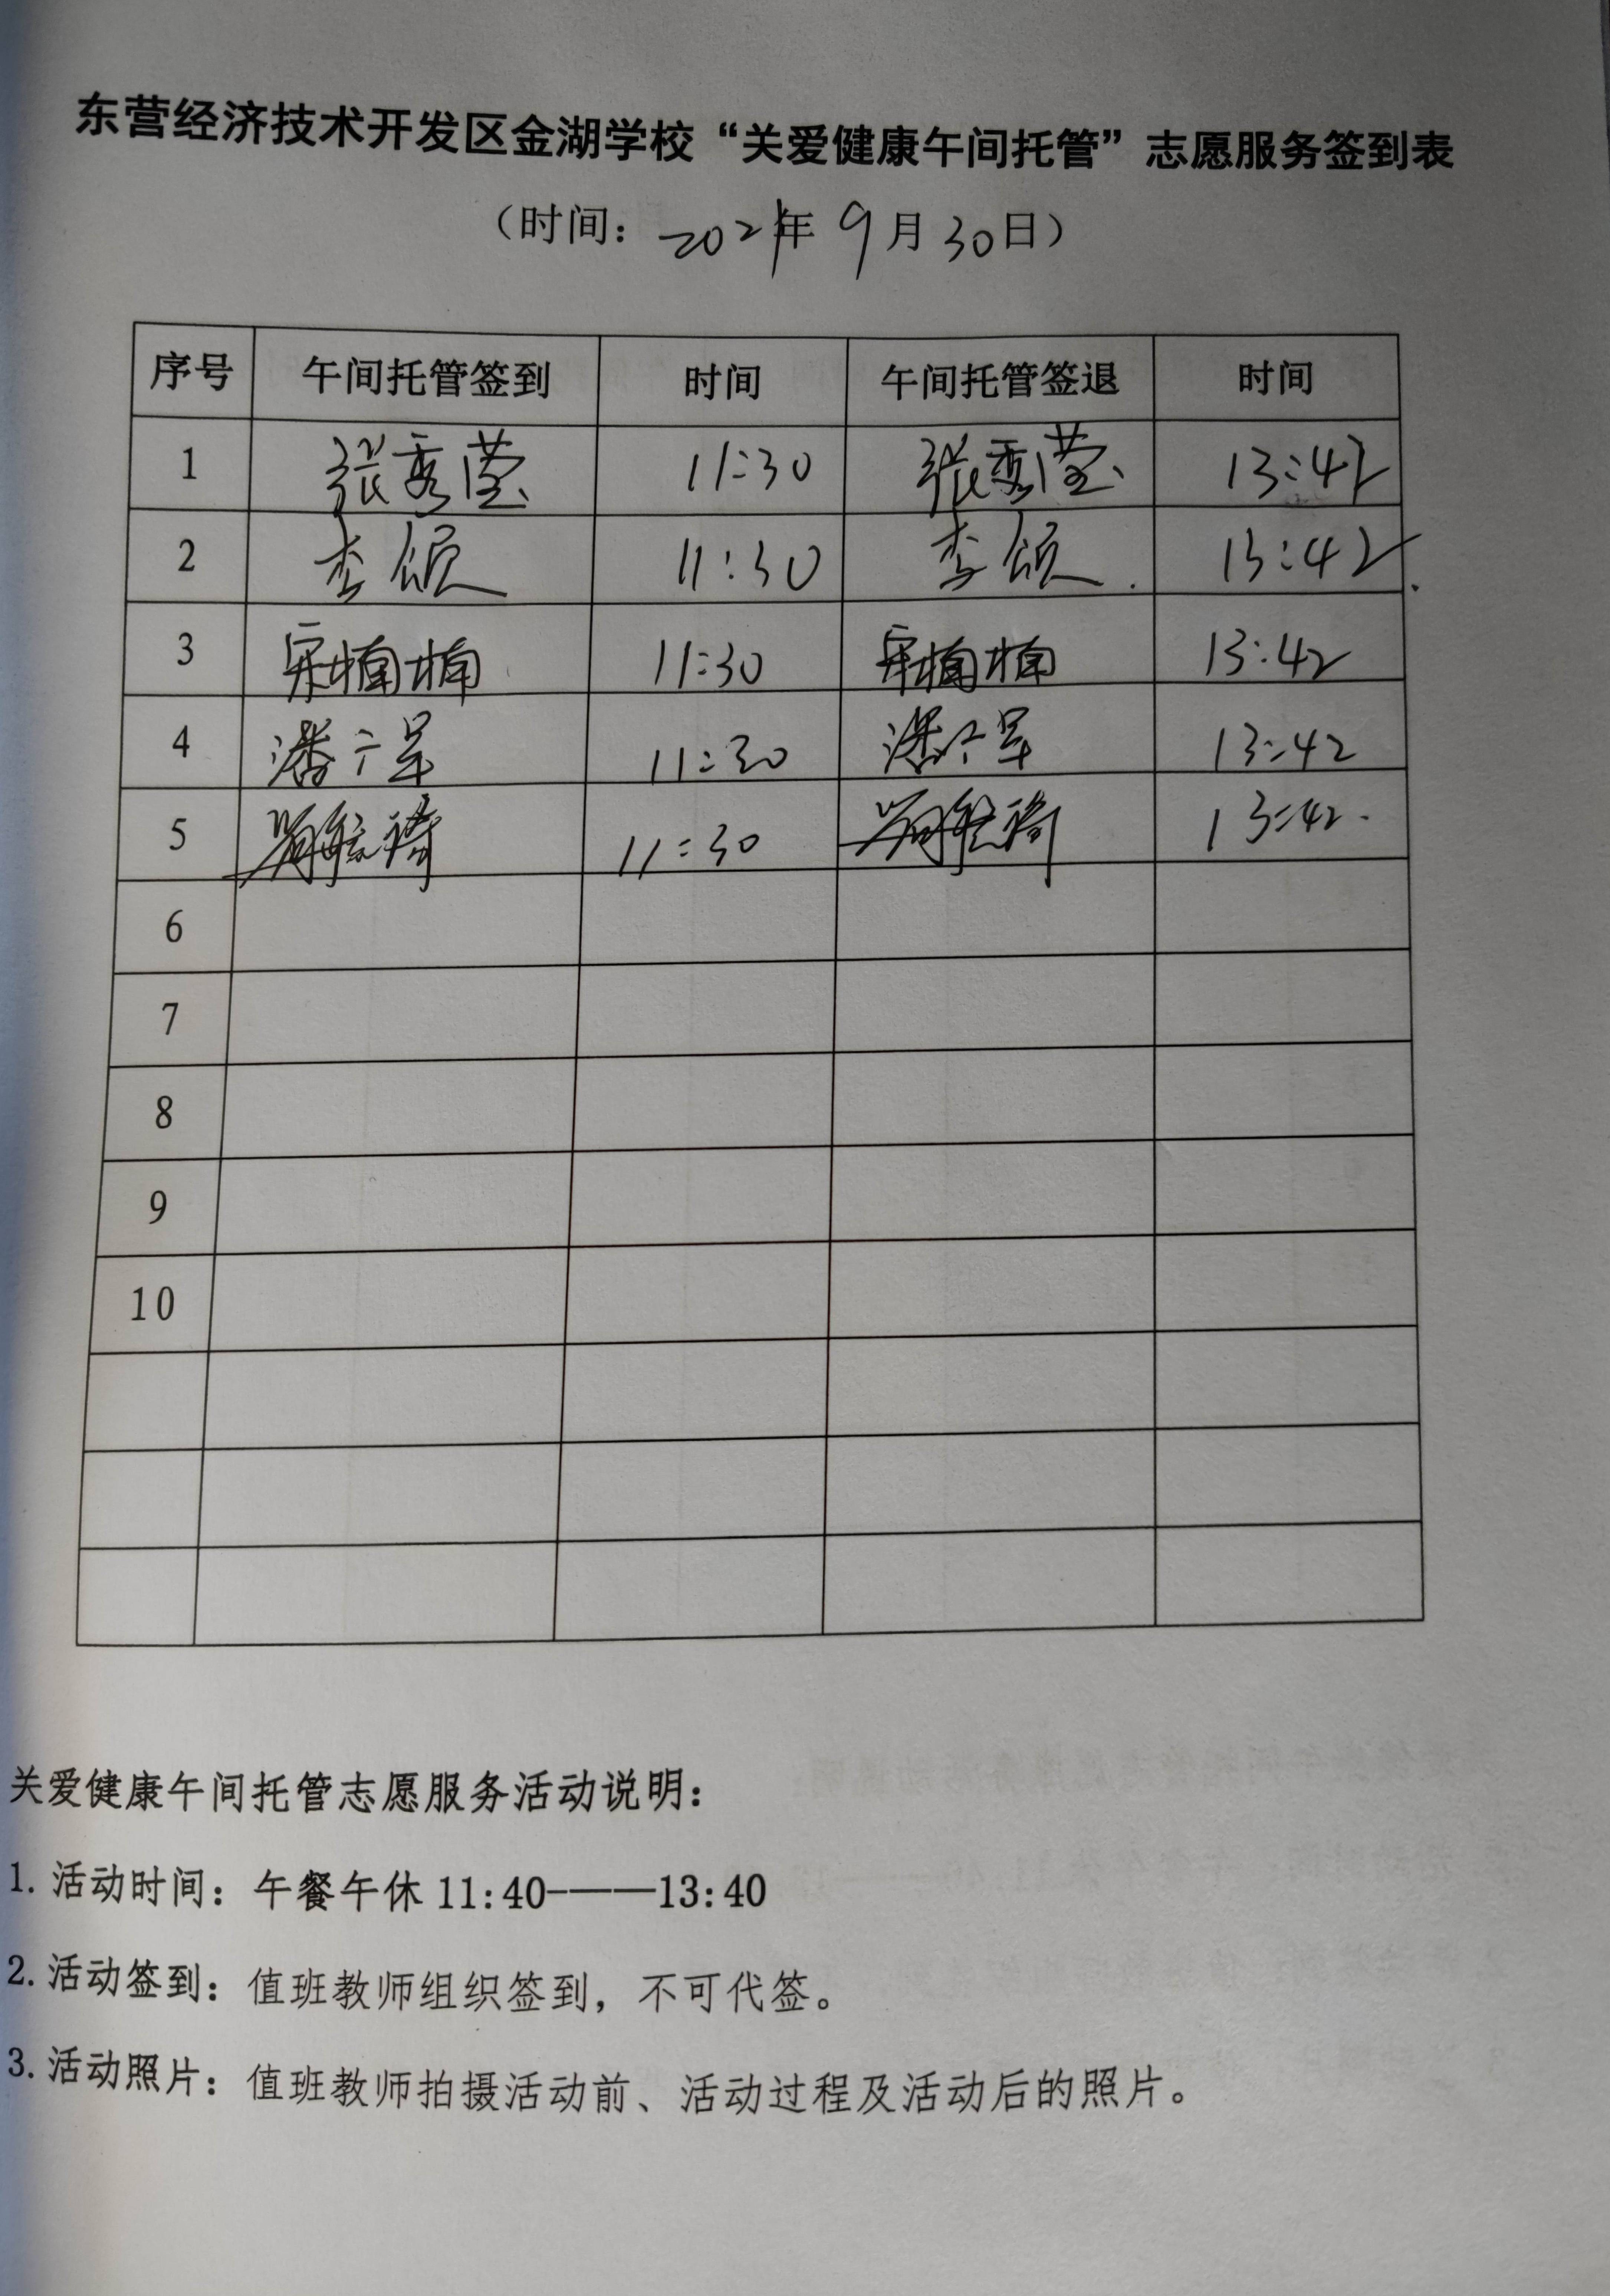 东营经济技术开发区金湖学校“关爱健康午间托管”志愿服务签到表
（时间：2021年9月30日）
序号 午间托管签到 时间 午间托管签退 时间
1 张秀莹 11:30 张秀莹 13:42
2 李颀 11:30 李颀 13:42
3 宋楠楠 11:30 宋楠楠 13:42
4 潘 11:30 潘 13:42
5 11:30 13:42
6
7
8
9
10
关爱健康午间托管志愿服务活动说明：
1.活动时间：午餐午休 11:40-——13:40
2.活动签到：值班教师组织签到，不可代签。
3.活动照片：值班教师拍摄活动前、活动过程及活动后的照片。